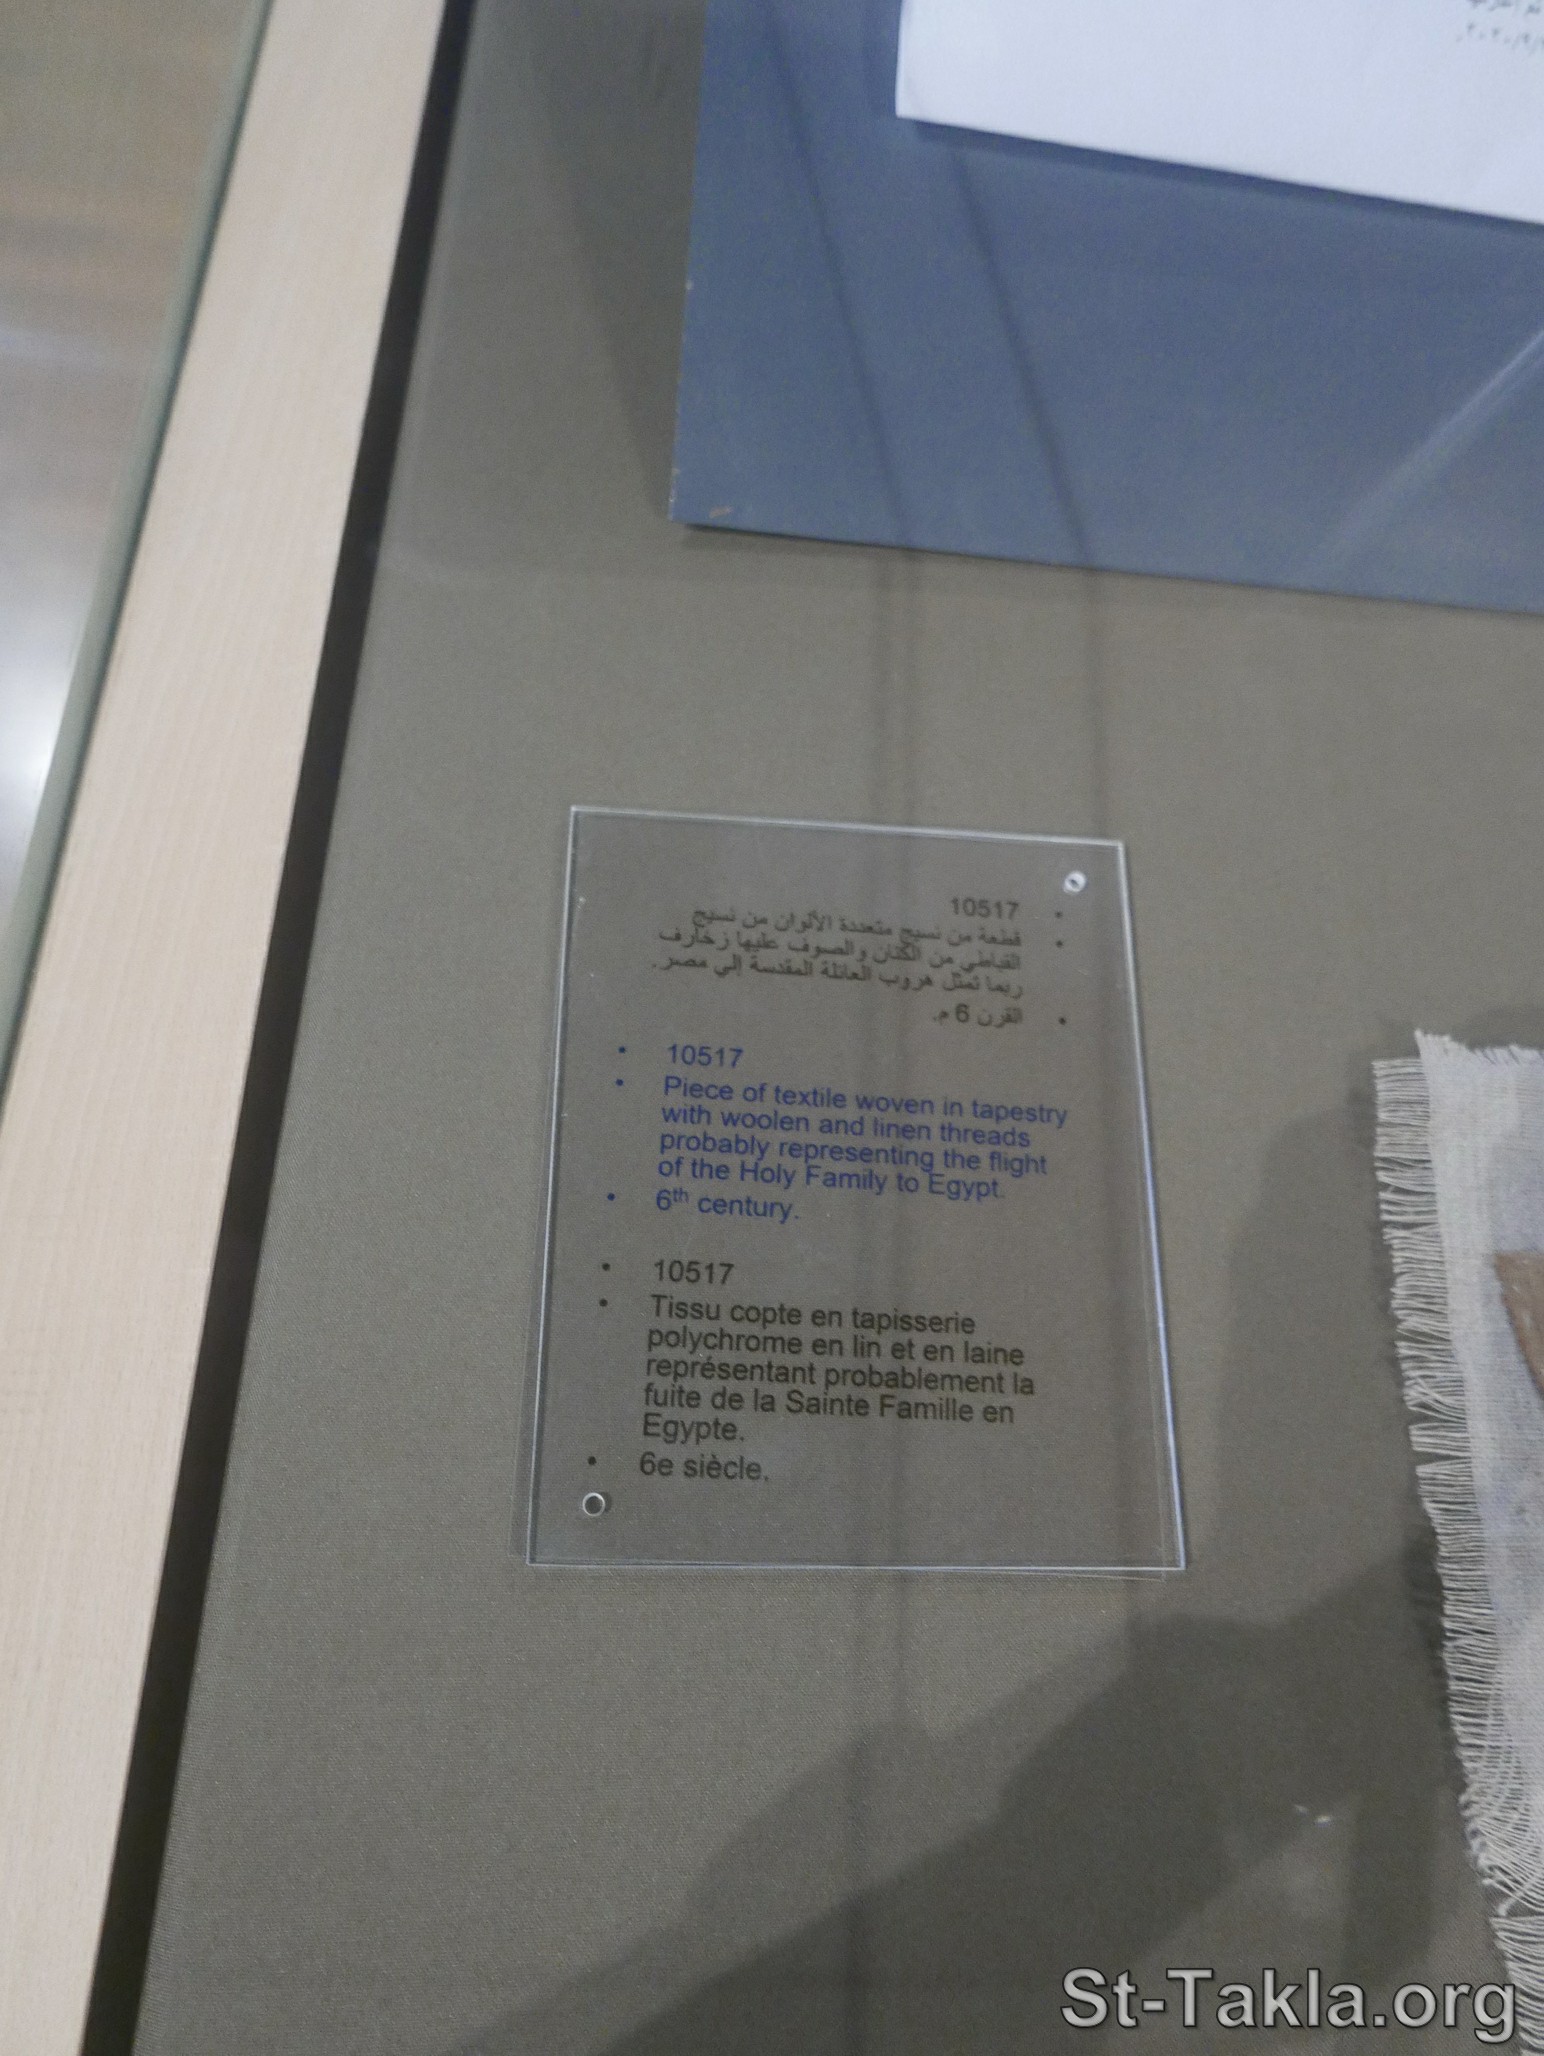 10517
قطعة من نسيج متعددة الألوان من نسيج
القباطي من الكتان والصوف عليها زخارف
ربما تمثل هروب العائلة المقدسة إلي مصر.
القرن 6 م.
10517
Piece of textile woven in tapestry
with woolen and linen threads
probably representing the flight
of the Holy Family to Egypt.
6th century.
10517
Tissu copte en tapisserie
polychrome en lin et en laine
représentant probablement la
fuite de la Sainte Famille en
Egypte.
6e siècle.
St-Takla.org